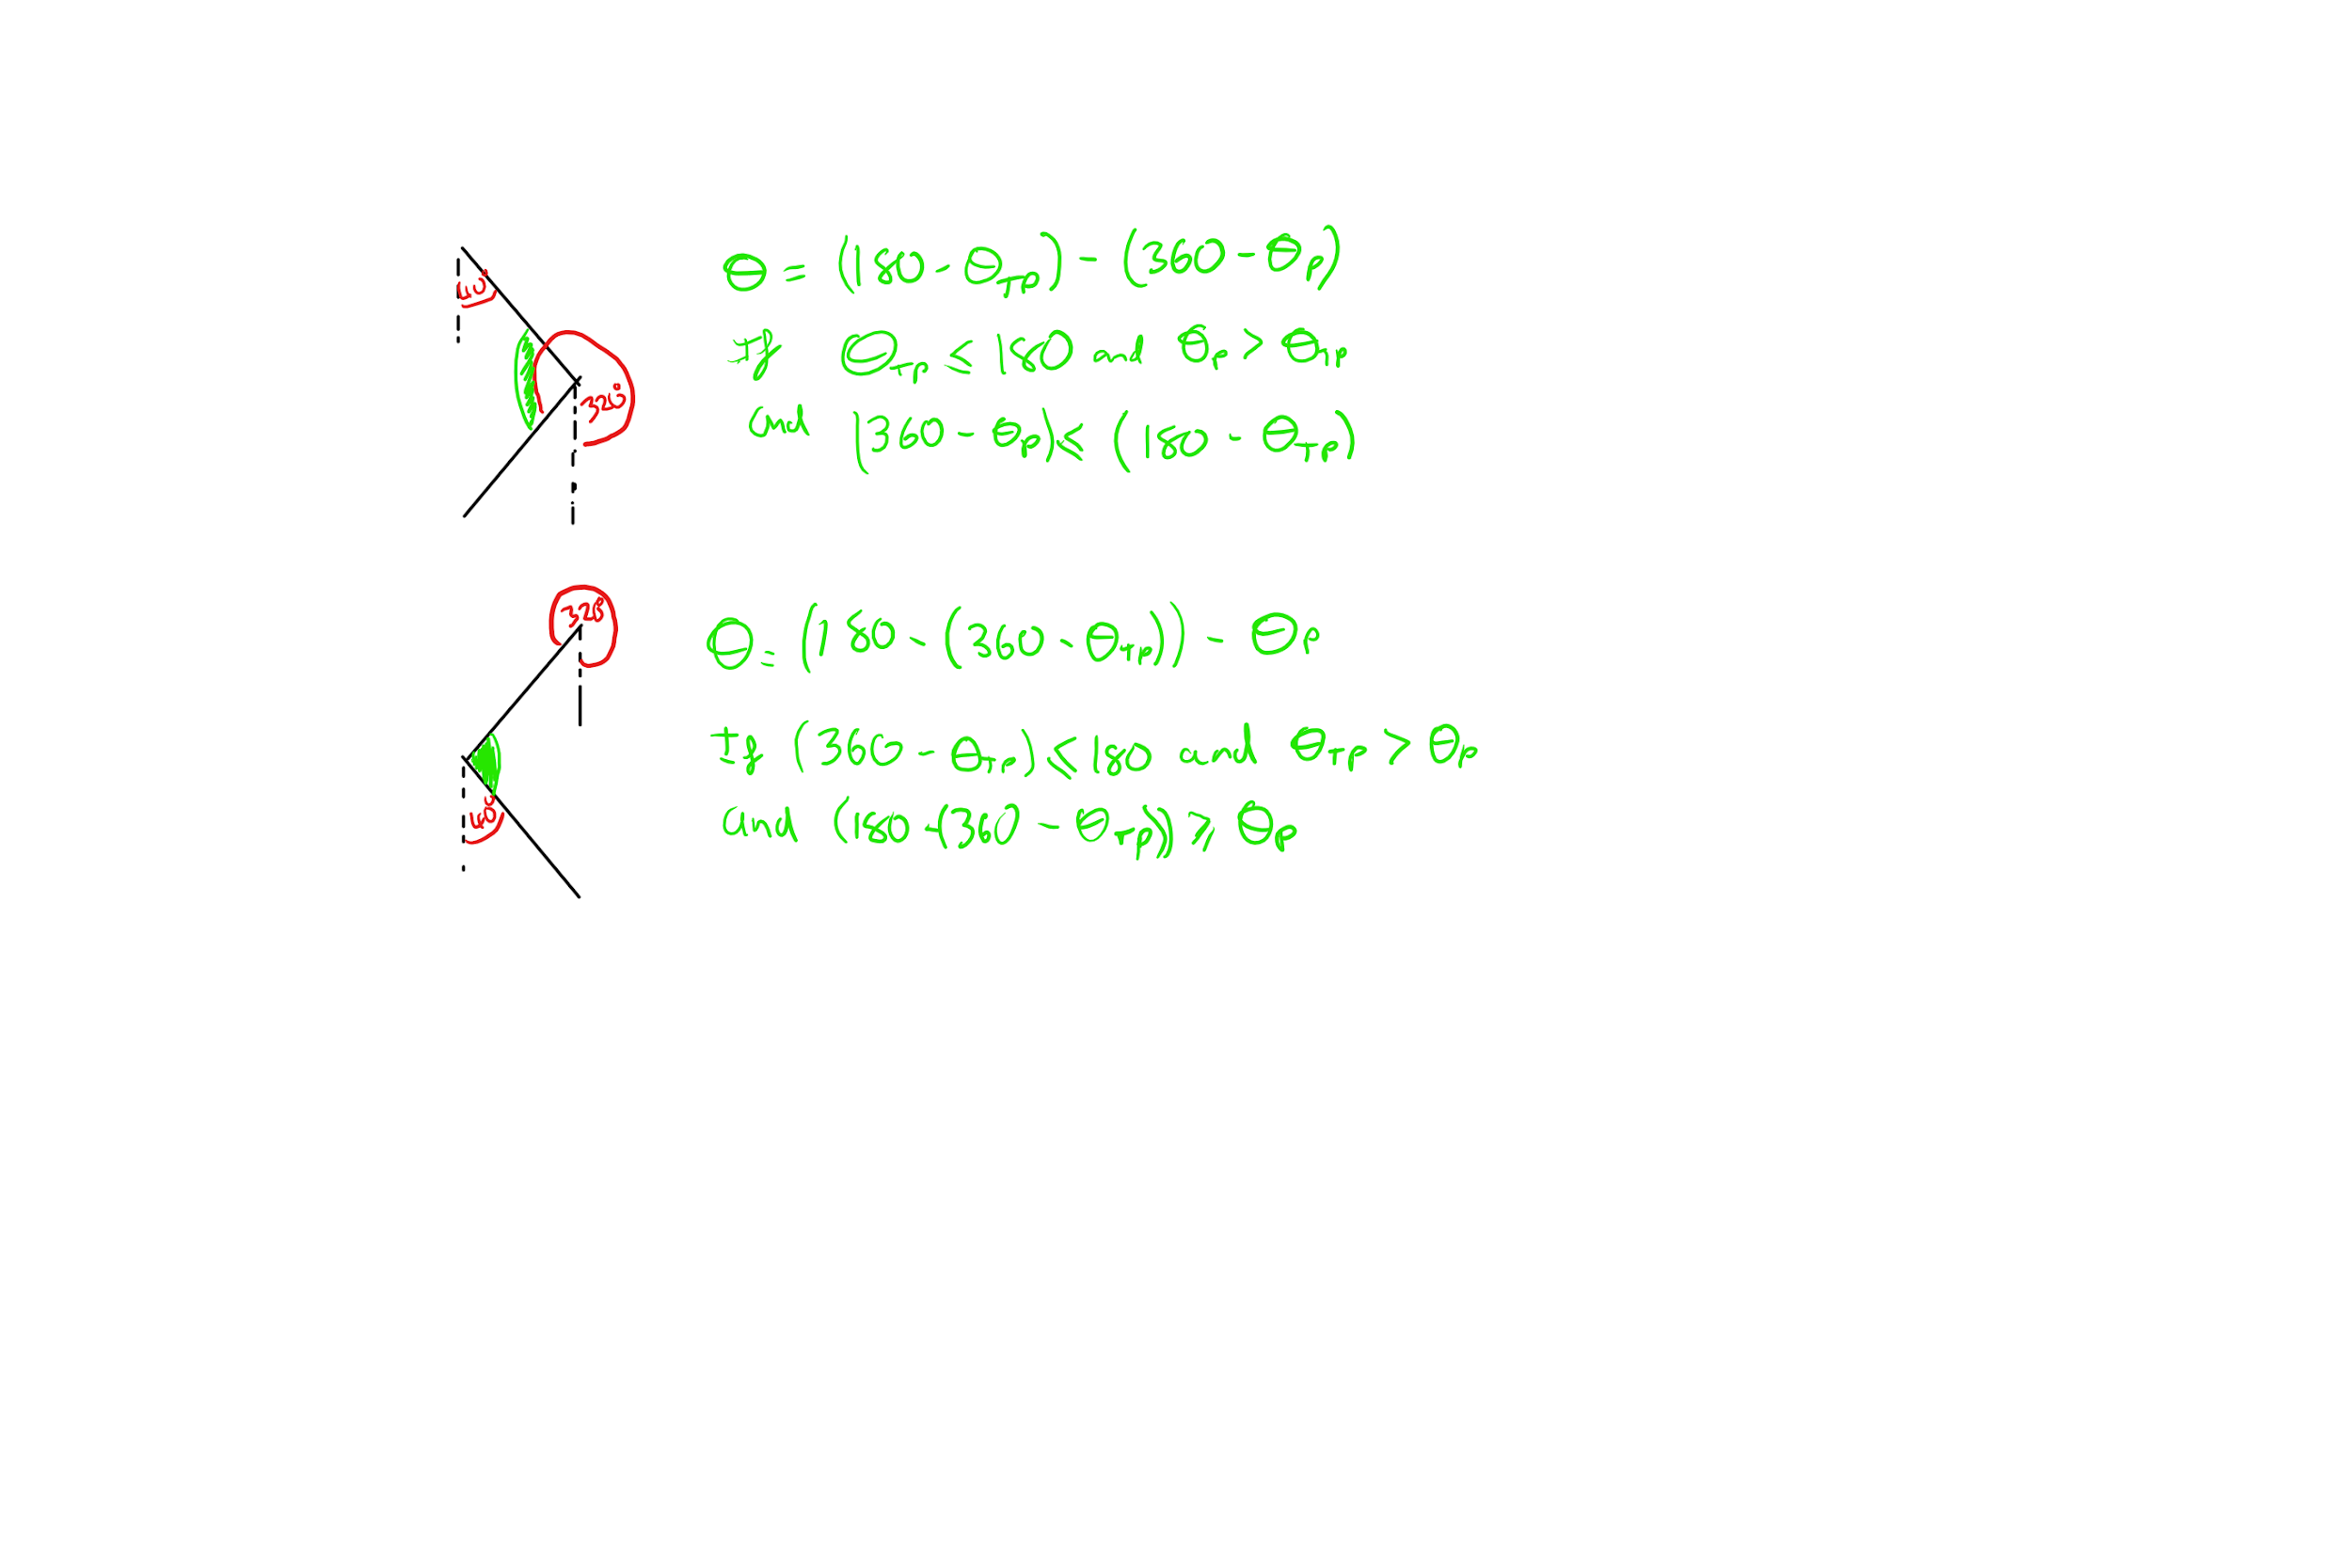 40°
θ = (180 - θTP) - (360 - θP)
If θTP ≤ 180 and θP > θTP
320°
and (360 - θP) ≤ (180 - θTP)
320
θ = (180 - (360 - θTP)) - θP
If (360 - θTP) ≤ 180 and θTP > θP
and (180 - (360 - θTP)) ≥ θP